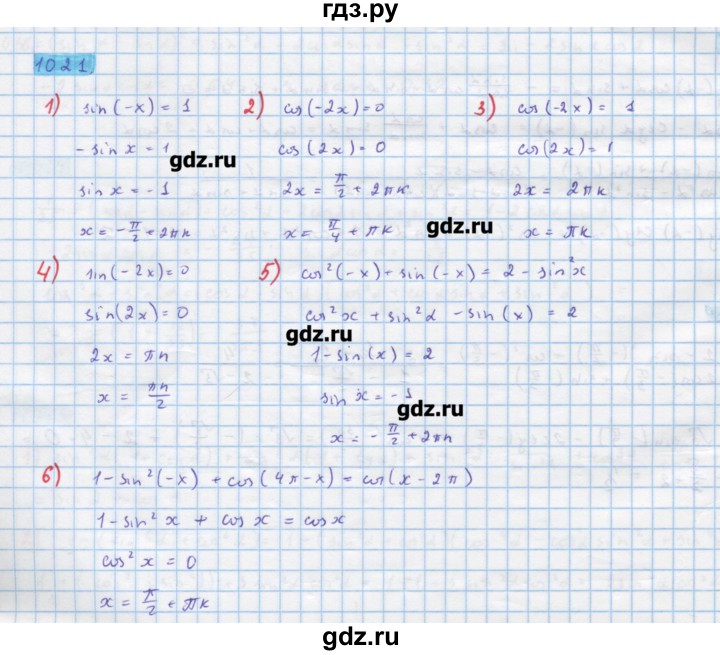 гдз.ру
1021)
1) sin(-x) = 1
- sin x = 1
sin x = - 1
x = -π/2 + 2πk
2) cos(-2x) = 0
cos(2x) = 0
2x = π/2 + 2πk
x = π/4 + πk
3) cos(-2x) = 1
cos(2x) = 1
2x = 2πk
x = πk
gdz.ru
gdz.ru
4) sin(-2x) = 0
sin(2x) = 0
2x = πn
x = πn/2
5) cos²(-x) + sin(-x) = 2 - sin²x
cos²x + sin²α - sin(x) = 2
1 - sin(x) = 2
sin x = - 1
x = - π/2 + 2πn
gdz.ru
gdz.ru
6) 1 - sin²(-x) + cos(4π - x) = cos(x - 2π)
1 - sin²x + cos x = cos x
cos²x = 0
x = π/2 + πk
gdz.ru